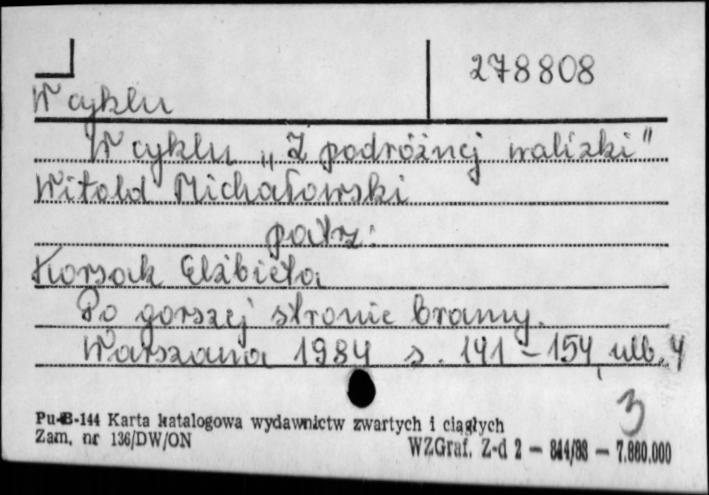 278808
W cyklu
W cyklu „Z podróżnej walizki"
Witold Michałowski
patrz:
Korsak Elżbieta
Po gorszej stronie bramy.
Warszawa 1984 s. 141-154, ulb. 4
3
Pu-B-144 Karta katalogowa wydawnictw zwartych i ciągłych
Zam. nr 136/DW/ON
WZGraf. Z-d 2 — 844/83 — 7.880.000